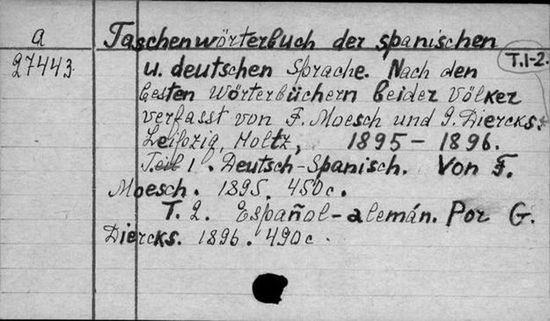 a Taschenwörterbuch der spanischen
27443 u. deutschen Sprache. Nach den T.1-2.
besten Wörterbüchern beider Völker
verfasst von F. Moesch und G. Diercks.
Leipzig, Holtz, 1895-1896.
Teil 1. Deutsch-Spanisch. Von F.
Moesch. 1895. 450c.
T. 2. Español-alemán. Por G.
Diercks. 1896. 490c.